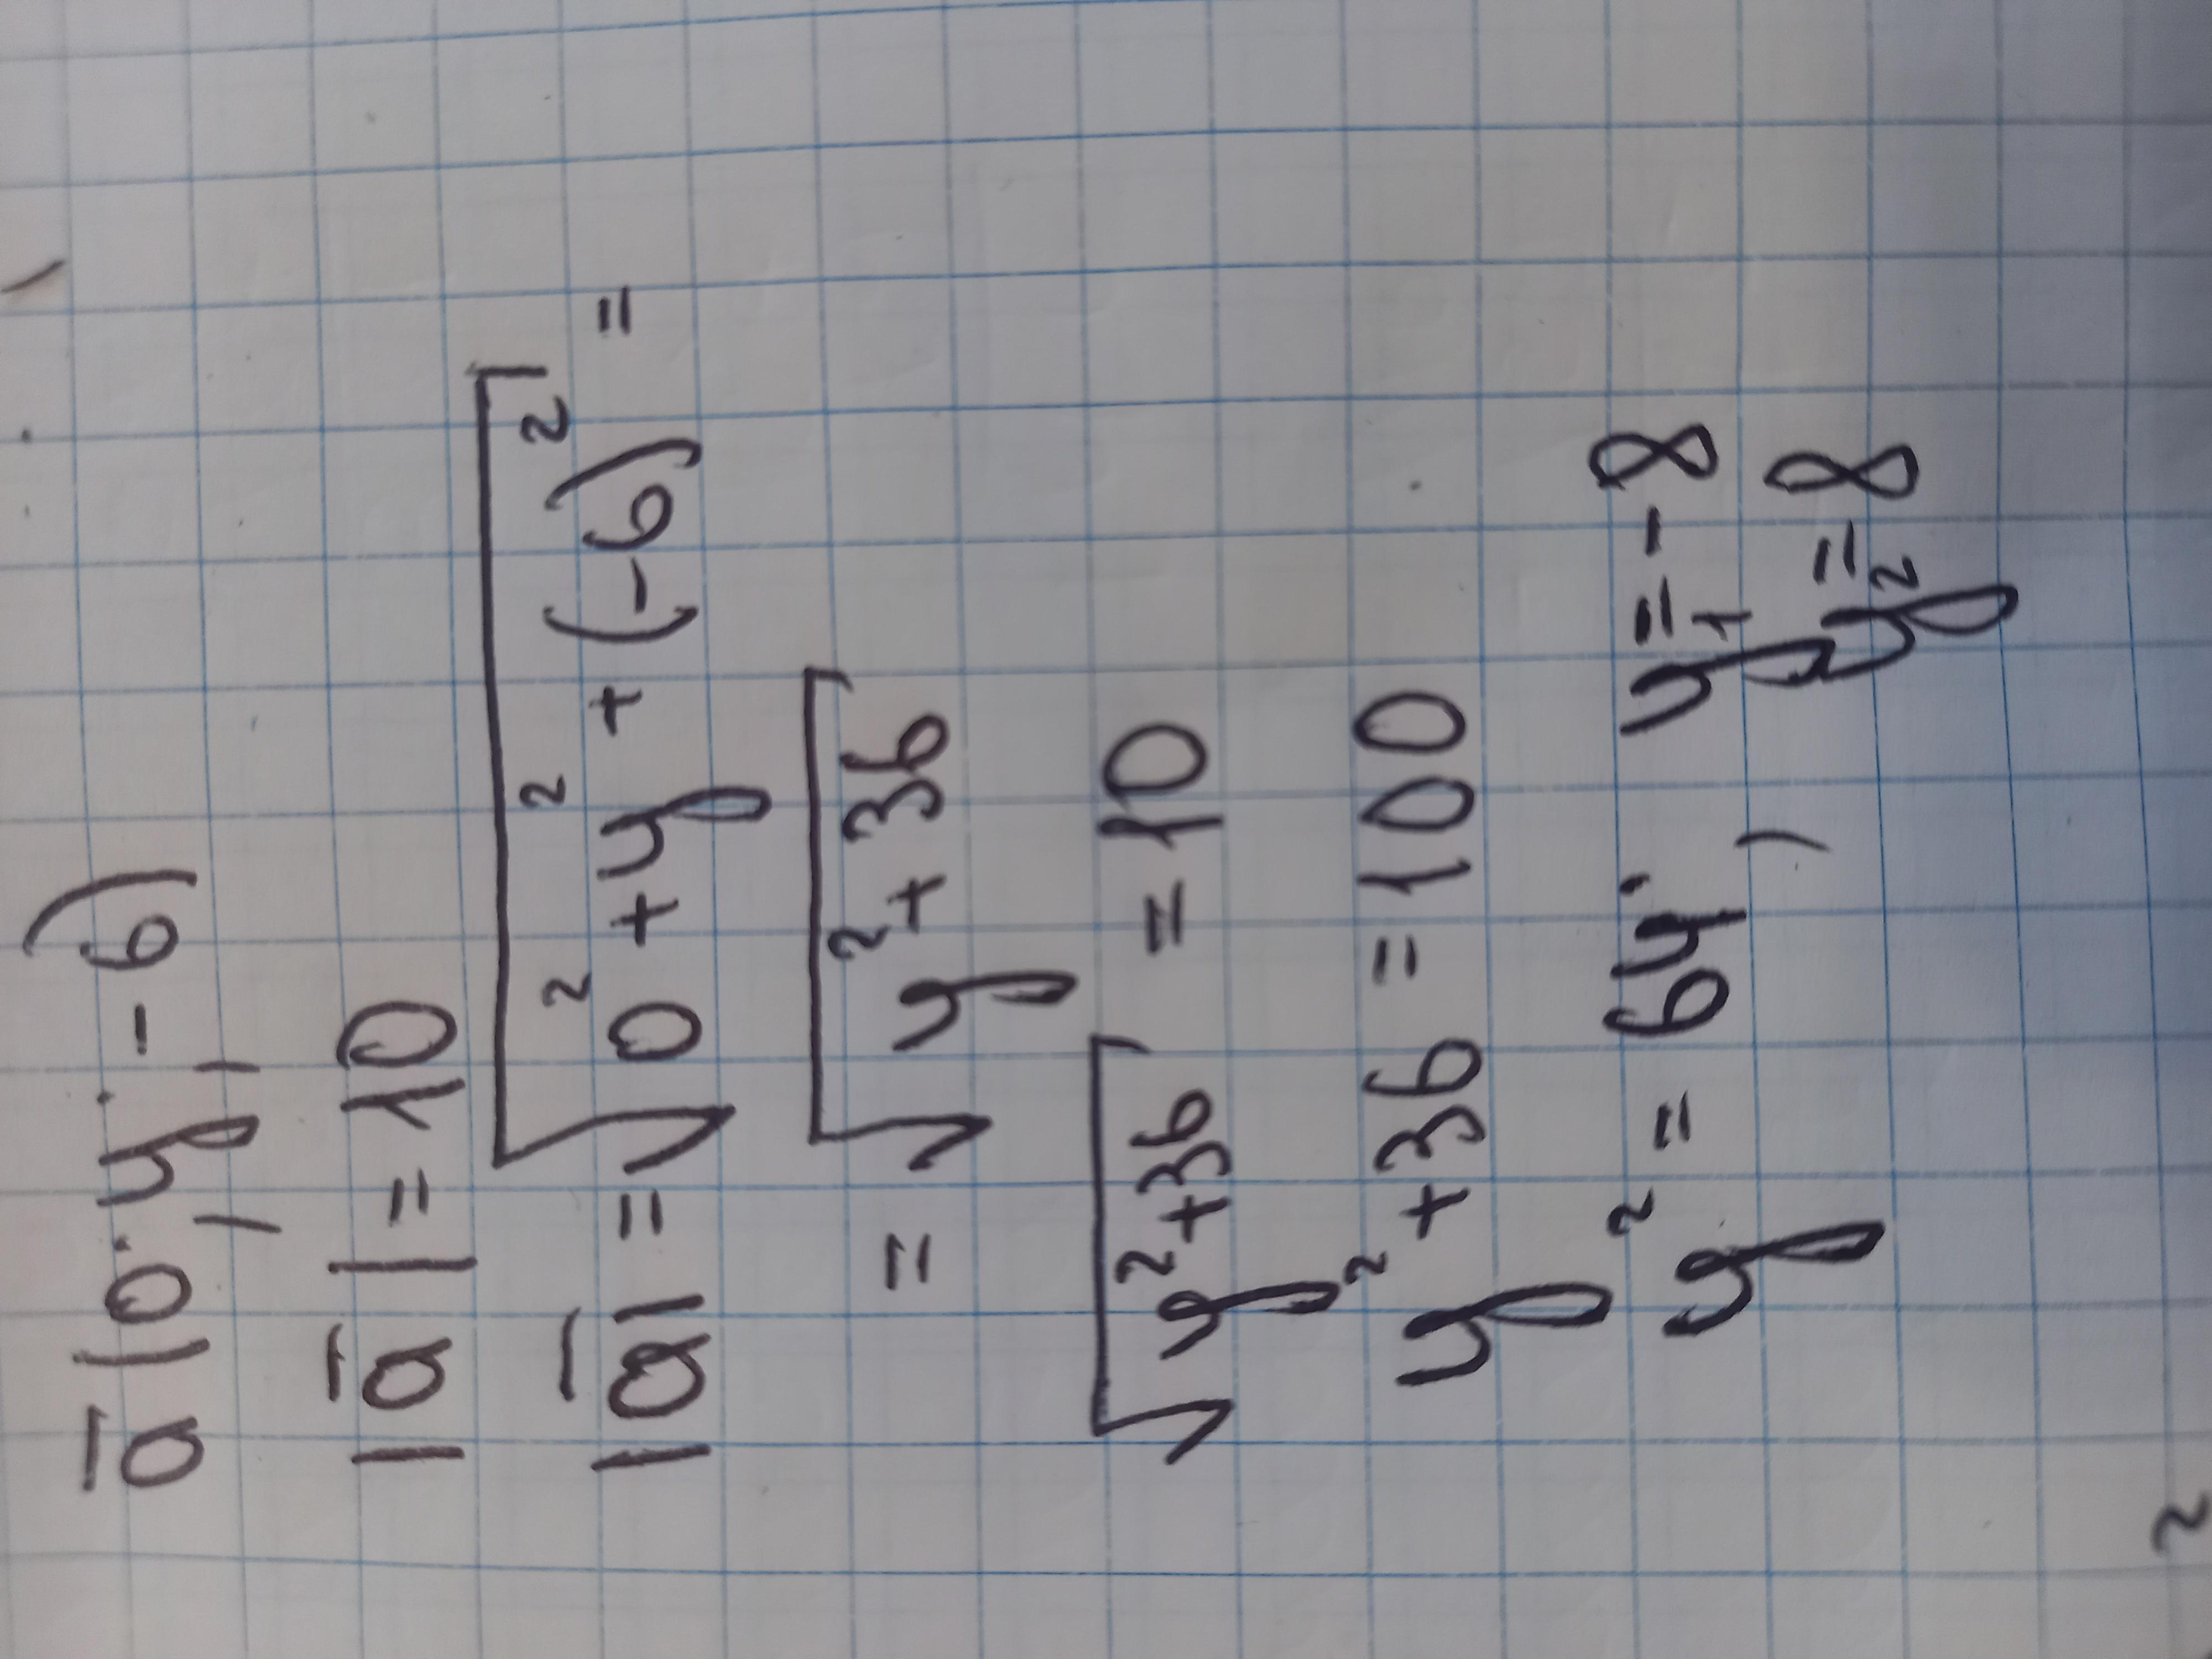 ā(0; y; -6)
|ā| = 10
|ā| = √(0² + y² + (-6)²) =
= √(y² + 36)
√(y² + 36) = 10
y² + 36 = 100
y² = 64; y₁ = -8
y₂ = 8
2